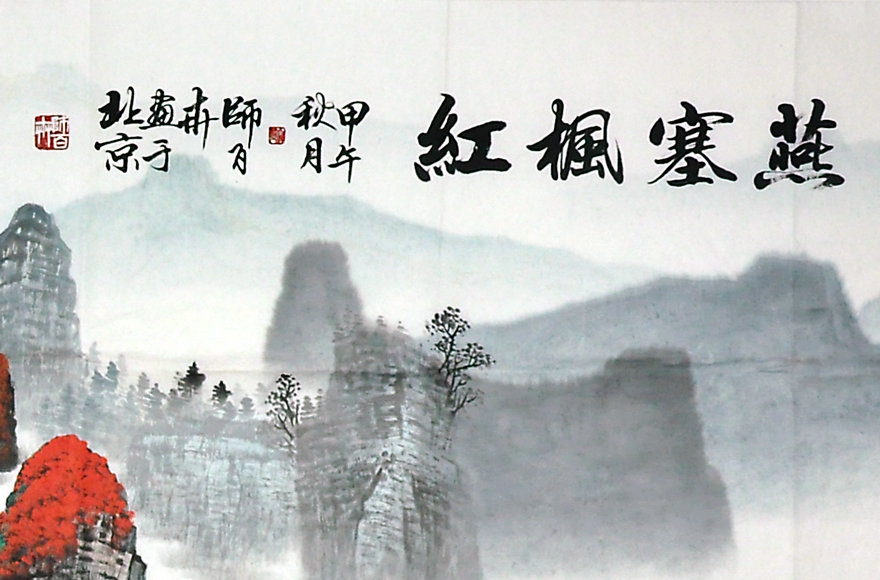 燕塞楓紅
甲午
秋月
師百
卉
畫于
北京